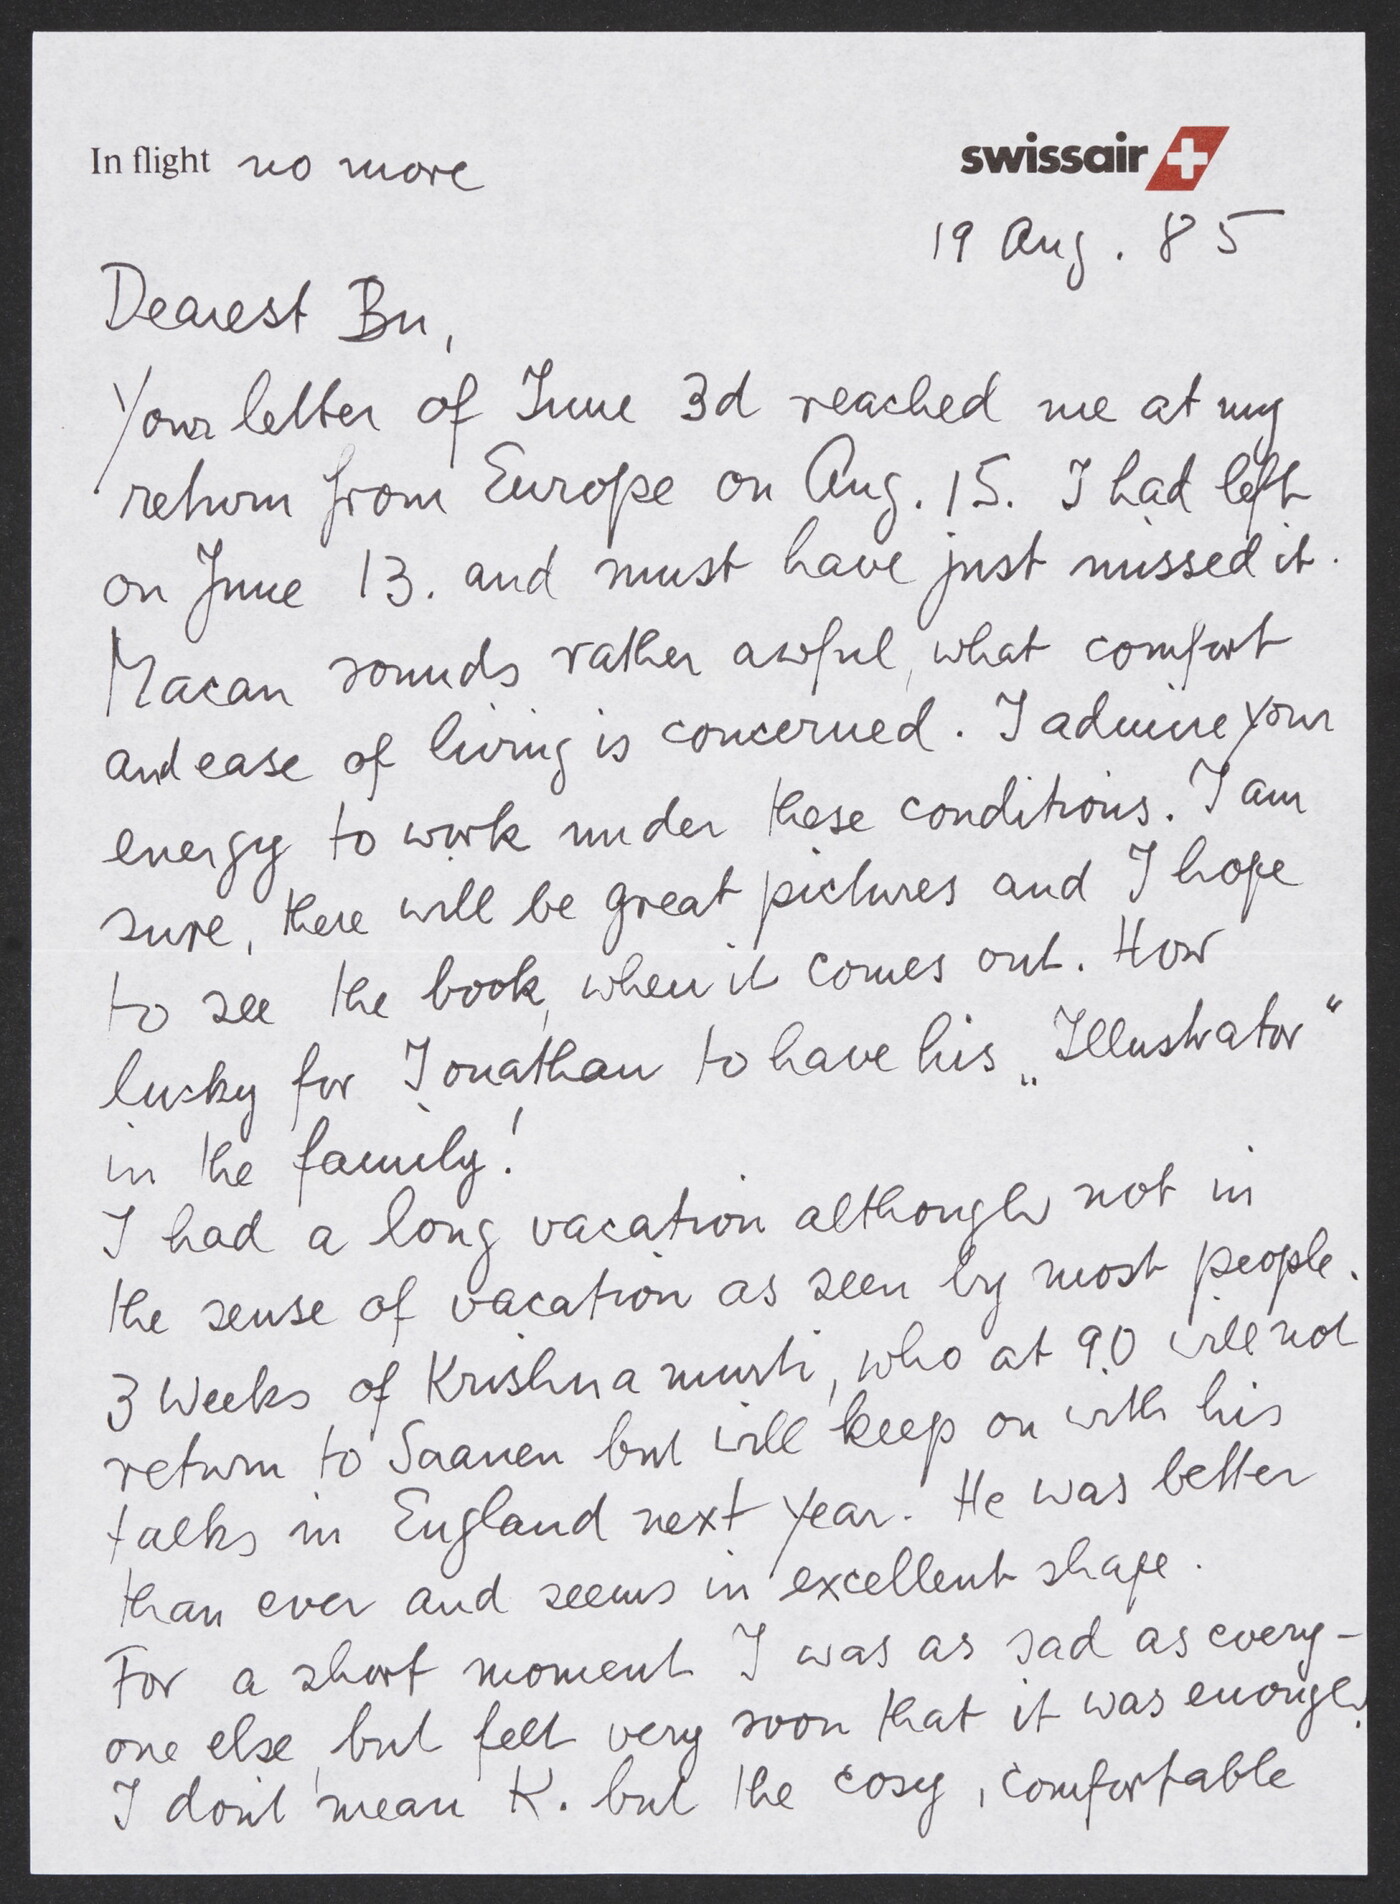 In flight no more
swissair
19 Aug. 85
Dearest Bu,
Your letter of June 3d reached me at my
return from Europe on Aug. 15. I had left
on June 13. and must have just missed it.
Macau sounds rather awful, what comfort
and ease of living is concerned. I admire your
energy to work under these conditions. I am
sure, there will be great pictures and I hope
to see the book, when it comes out. How
lucky for Jonathan to have his „Illustrator“
in the family!
I had a long vacation although not in
the sense of vacation as seen by most people.
3 Weeks of Krishnamurti, who at 90 will not
return to Saanen but will keep on with his
talks in England next year. He was better
than ever and seems in excellent shape.
For a short moment I was as sad as every-
one else, but felt very soon that it was enough.
I don't mean K. but the cosy, comfortable